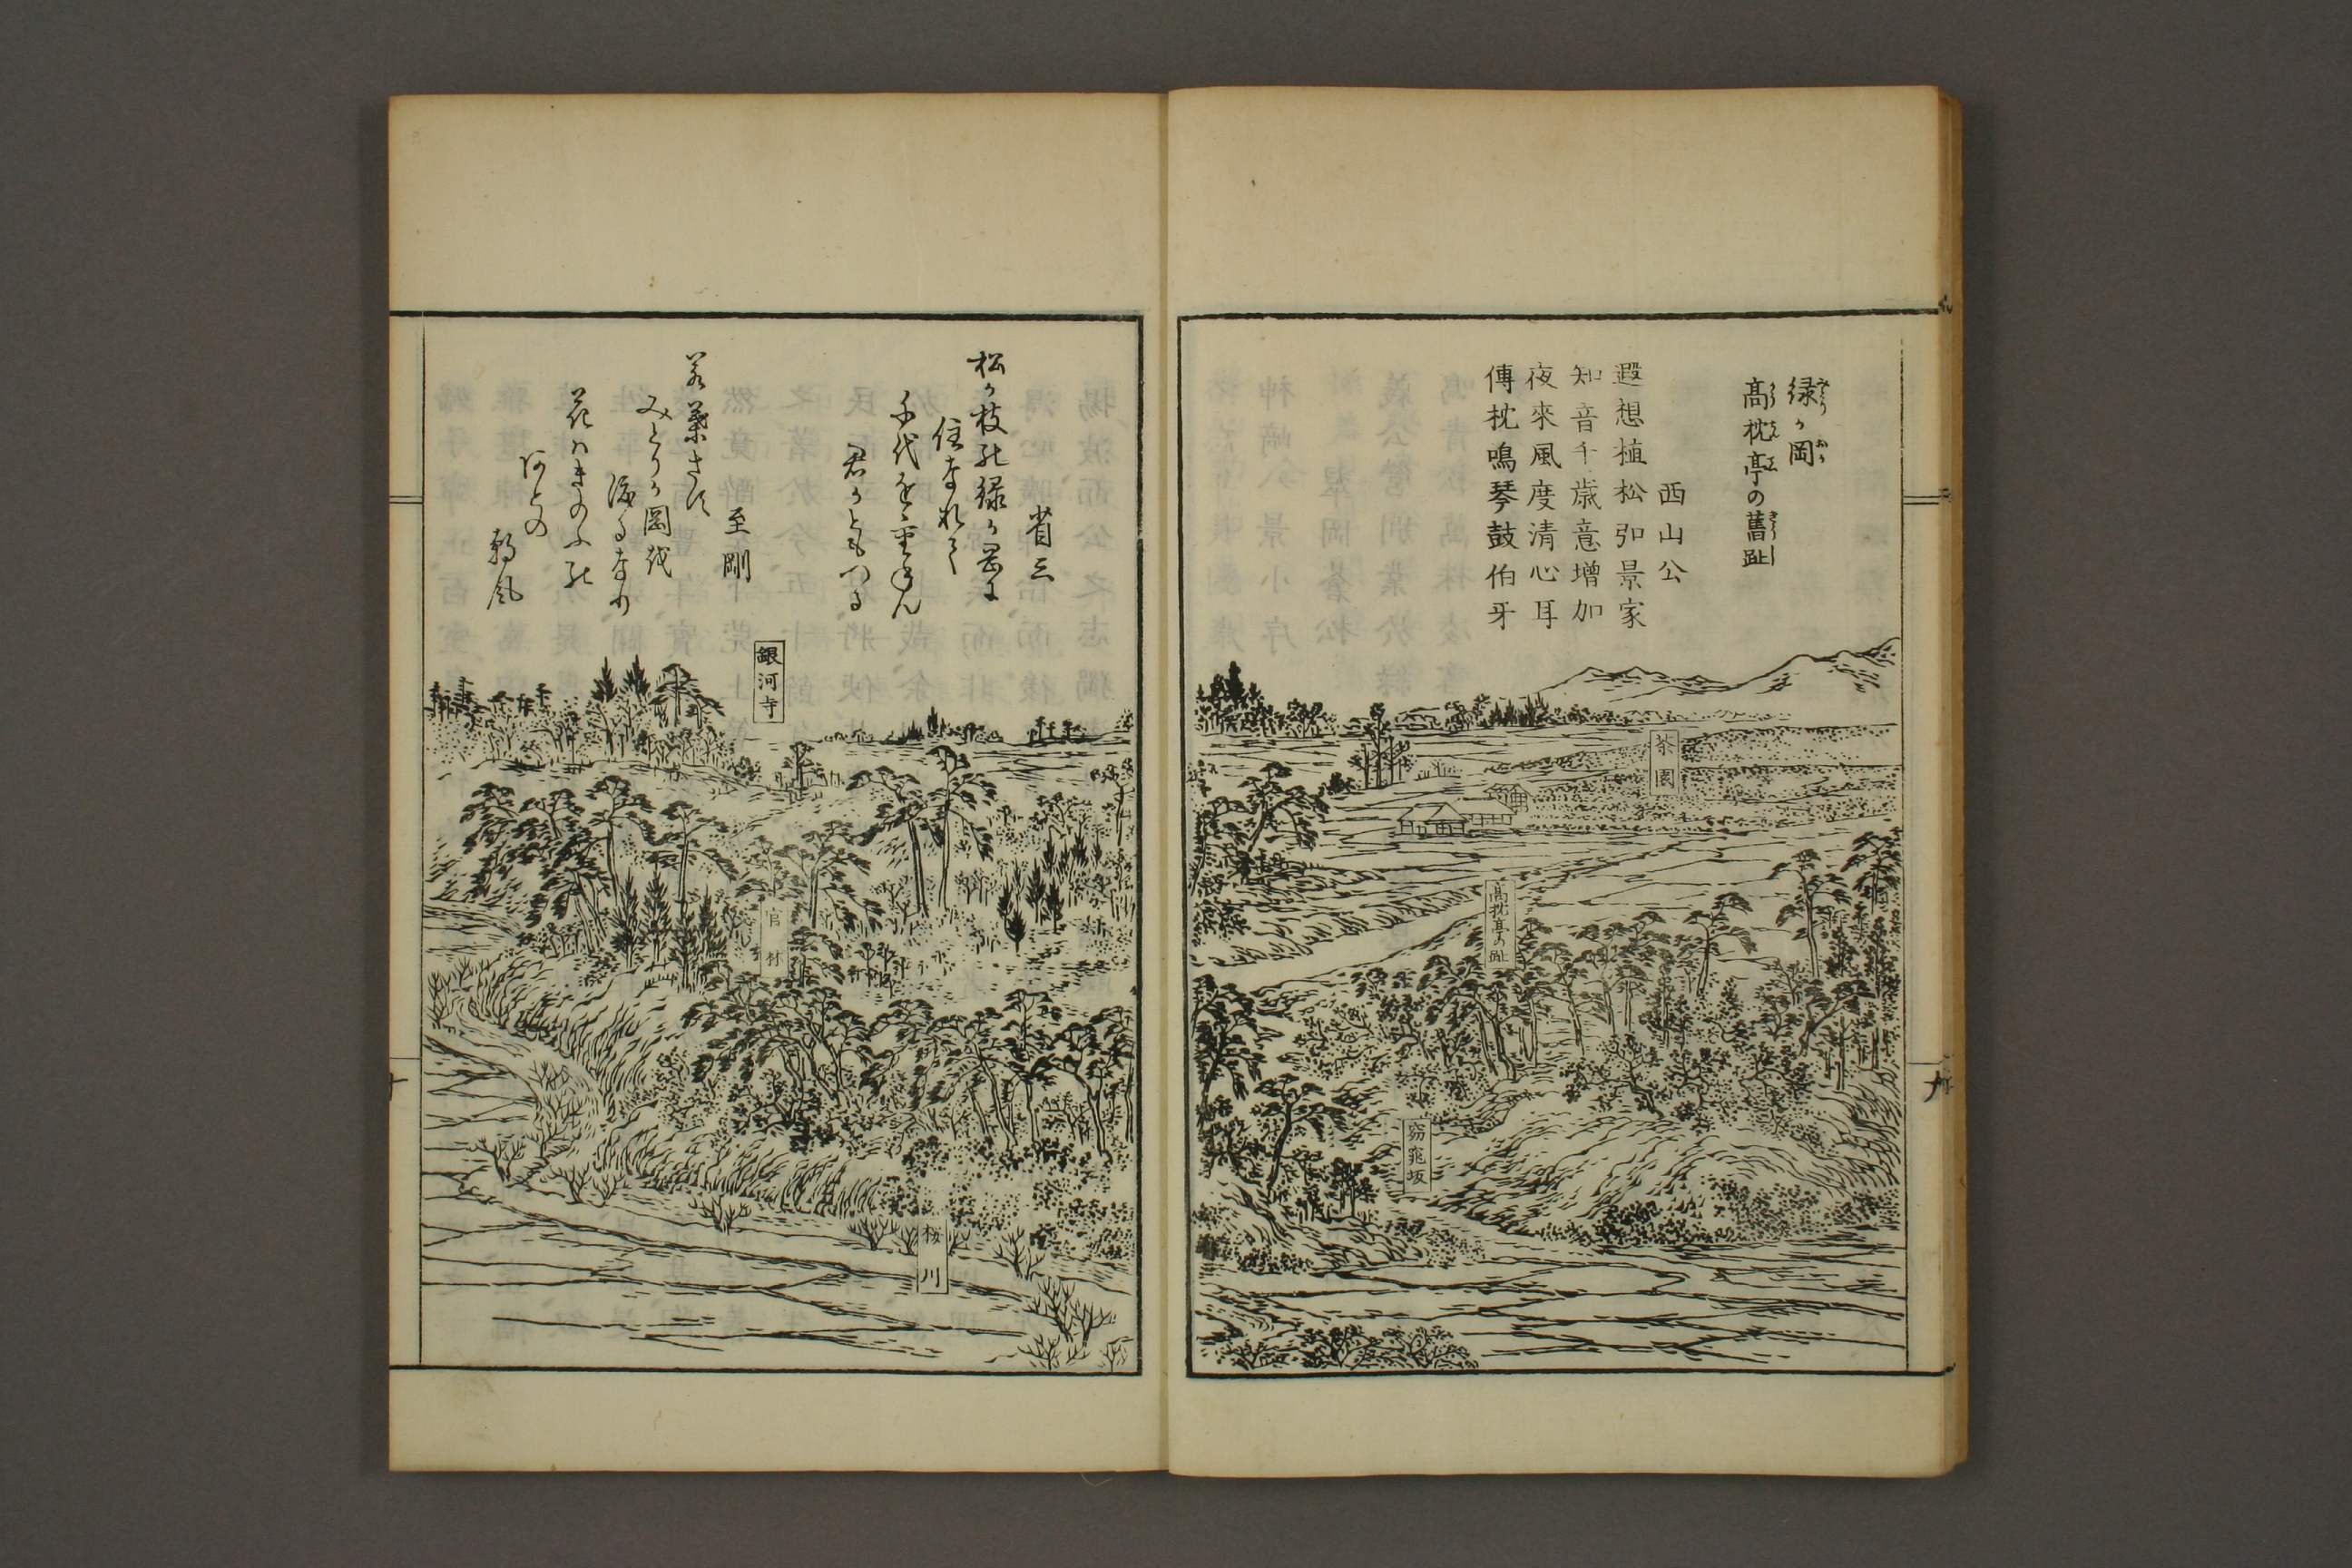 緑ヶ岡
高枕亭の舊趾
西山公
遐想植松弘景家
知音千歳意増加
夜來風度清心耳
傳枕鳴琴鼓伯牙
茶園
高枕亭の趾
窈窕坂
九
省三
松か枝の緑か岡に
住なれて
千代を重ねん
君かともつる
至剛
若葉さす
みとりか岡を
渡るなり
花はきのふの
あとの
朝風
銀河寺
官林
桜川